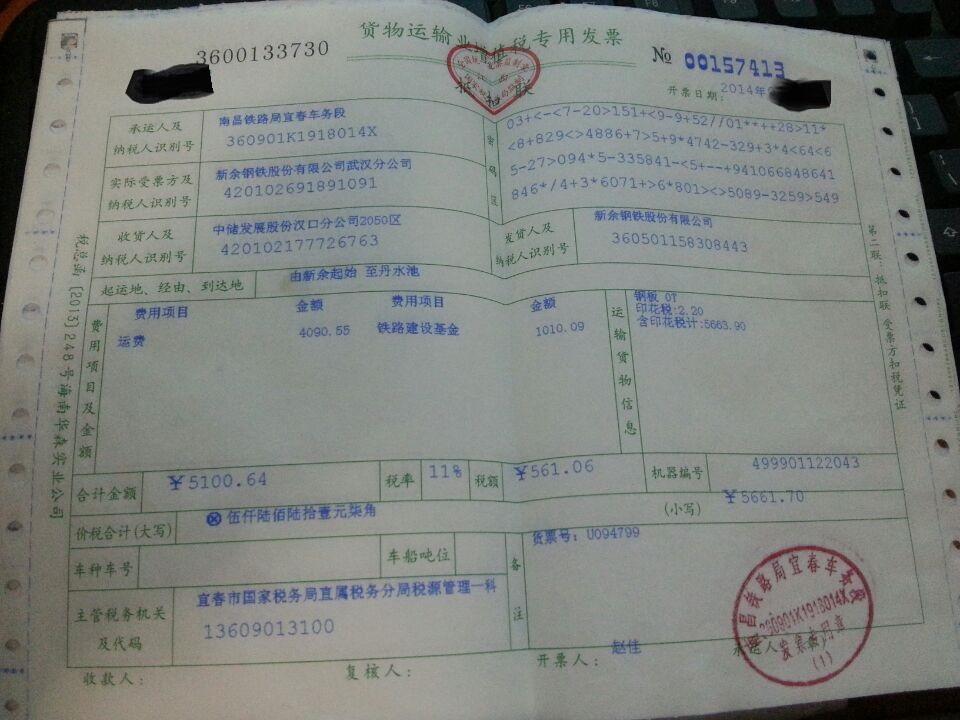 货物运输业增值税专用发票
3600133730
抵扣联
№ 00157413
开票日期: 2014年
承运人及纳税人识别号
南昌铁路局宜春车务段
360901K1918014X
密码区
03+<-<7-20>151+<9-9+52//01**++28>11*
<8+829<>4886+7>5+9*4742-329+3*4<64<6
5-27>094*5-335841-<5+--+941066848641
846*/4+3*6071+>6*801><>5089-3259>549
实际受票方及纳税人识别号
新余钢铁股份有限公司武汉分公司
420102691891091
收货人及纳税人识别号
中储发展股份汉口分公司2050区
420102177726763
发货人及纳税人识别号
新余钢铁股份有限公司
360501158308443
起运地、经由、到达地
由新余起始 至丹水池
费用项目及金额
费用项目 金额 费用项目 金额
运费 4090.55 铁路建设基金 1010.09
运输货物信息
钢板 0T
印花税:2.20
含印花税计:5663.90
合计金额 ¥5100.64 税率 11% 税额 ¥561.06 机器编号 499901122043
价税合计(大写) ⊗伍仟陆佰陆拾壹元柒角 (小写) ¥5661.70
车种车号 车船吨位
备注
货票号: U094799
主管税务机关及代码
宜春市国家税务局直属税务分局税源管理一科
13609013100
收款人: 复核人: 开票人: 赵佳 承运人
南昌铁路局宜春车务段
360901K1918014X
发票专用章
(1)
税总函[2013]248号海南华森实业公司
第二联 抵扣联 受票方扣税凭证